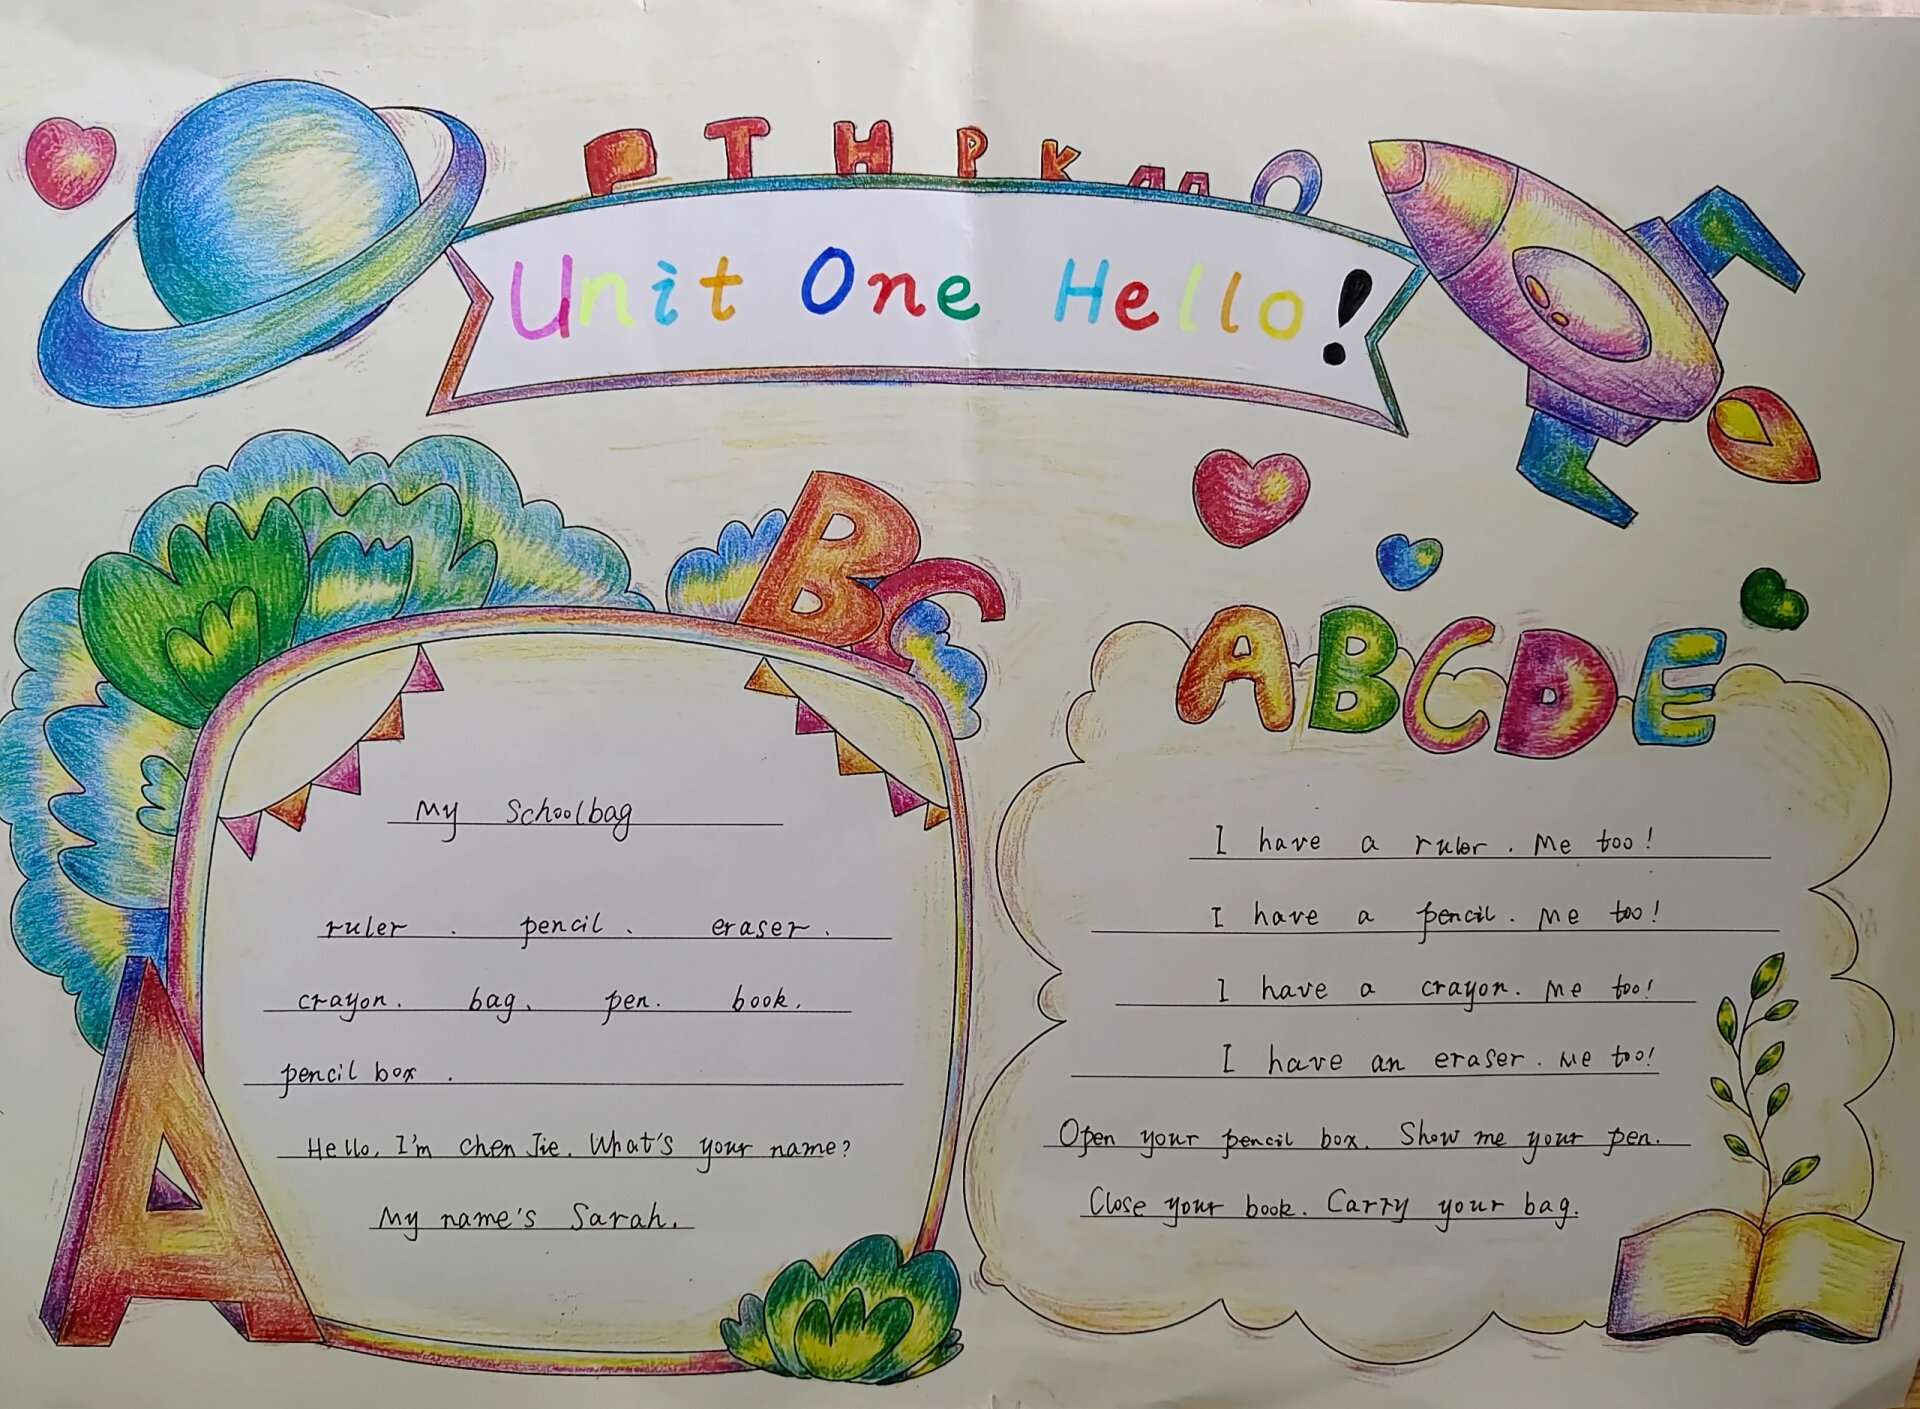 E T H P K
Unit One Hello!
BC
ABCDE
A
My Schoolbag
ruler . pencil . eraser .
crayon . bag . pen . book .
pencil box .
Hello, I'm Chen Jie. What's your name?
My name's Sarah.
I have a ruler . Me too!
I have a pencil . Me too!
I have a crayon . Me too!
I have an eraser . Me too!
Open your pencil box. Show me your pen.
Close your book. Carry your bag.